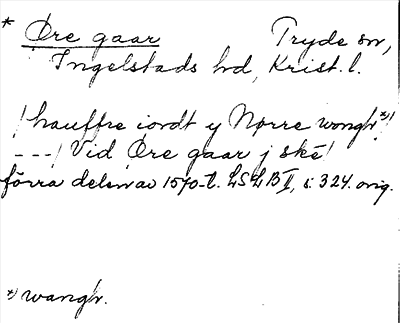 * Øre gaar Tryde sn,
Ingelstads hd, Krist. l.
/ hauffre iordt y Nørre wongh *)!
---/ Vid Øre gaar j ské!
förra delen av 1570-t. LSLB II, s. 324. orig.
*) wangh.